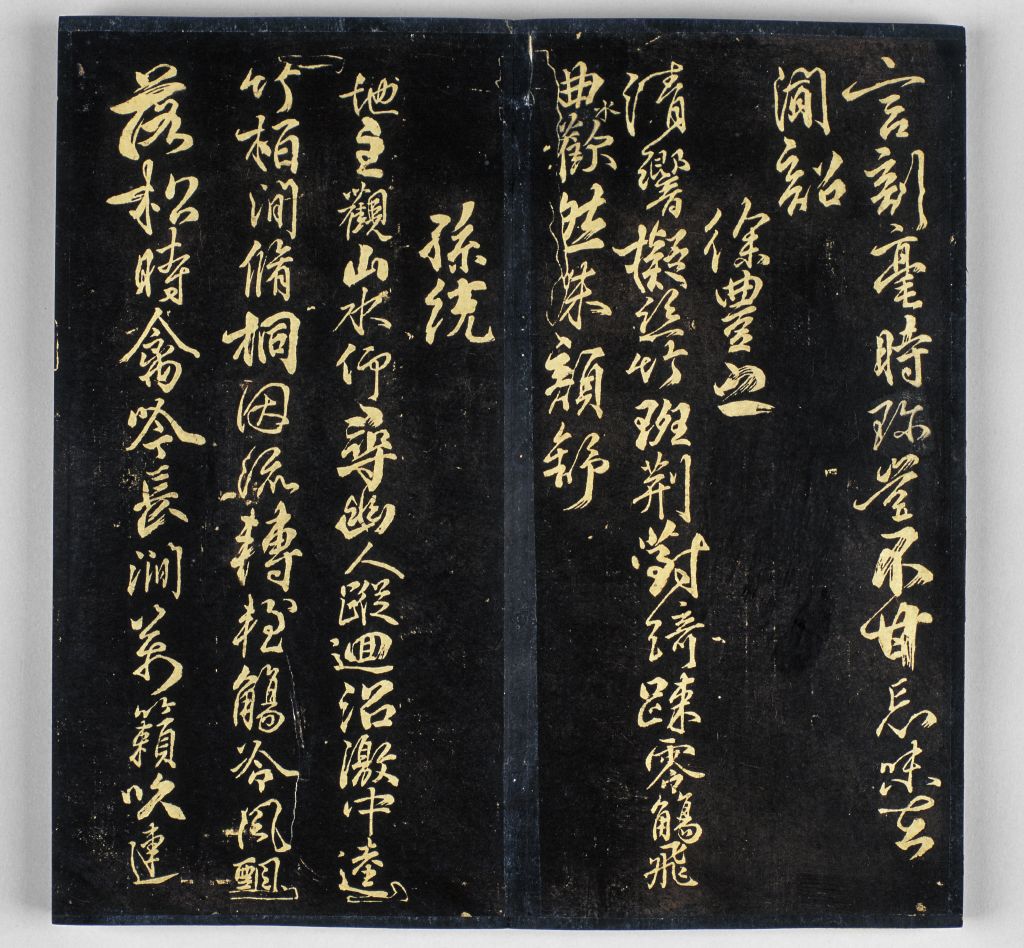 言剖毫時珍豈不甘忘味在
聞韶
徐豐之
清響擬絲竹班荊對綺踈零觴飛
曲水歡然朱顏舒
孫統
地主觀山水仰尋幽人蹤迴沼激中逵
竹柏澗脩桐因流轉輕觴冷風飄
落松時禽吟長澗萬籟吹連